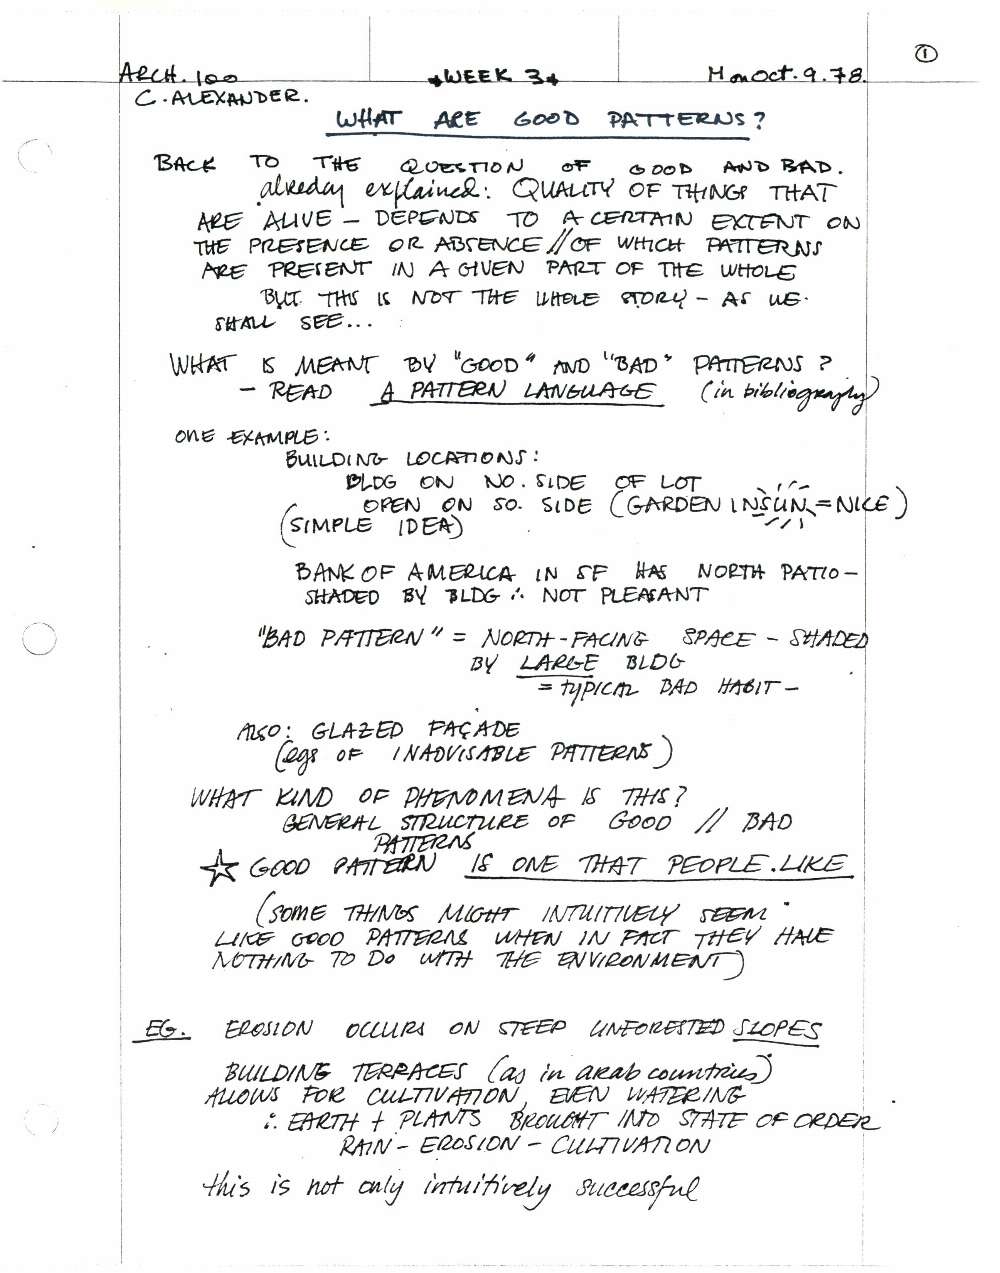 ①
ARCH. 100 WEEK 3 Mon Oct. 9. 78.
C. ALEXANDER.
WHAT ARE GOOD PATTERNS?
BACK TO THE QUESTION OF GOOD AND BAD.
already explained: QUALITY OF THINGS THAT
ARE ALIVE – DEPENDS TO A CERTAIN EXTENT ON
THE PRESENCE OR ABSENCE // OF WHICH PATTERNS
ARE PRESENT IN A GIVEN PART OF THE WHOLE
BUT THIS IS NOT THE WHOLE STORY – AS WE
SHALL SEE...
WHAT IS MEANT BY "GOOD" AND "BAD" PATTERNS?
– READ A PATTERN LANGUAGE (in bibliography)
ONE EXAMPLE:
BUILDING LOCATIONS:
BLDG ON NO. SIDE OF LOT
OPEN ON SO. SIDE (GARDEN IN SUN = NICE)
(SIMPLE IDEA)
BANK OF AMERICA IN SF HAS NORTH PATIO –
SHADED BY BLDG ∴ NOT PLEASANT
"BAD PATTERN" = NORTH-FACING SPACE – SHADED
BY LARGE BLDG
= TYPICAL BAD HABIT –
ALSO: GLAZED FAÇADE
(egs OF INADVISABLE PATTERNS)
WHAT KIND OF PHENOMENA IS THIS?
GENERAL STRUCTURE OF GOOD // BAD
PATTERNS
☆ GOOD PATTERN IS ONE THAT PEOPLE LIKE
(SOME THINGS MIGHT INTUITIVELY SEEM
LIKE GOOD PATTERNS WHEN IN FACT THEY HAVE
NOTHING TO DO WITH THE ENVIRONMENT)
EG. EROSION OCCURS ON STEEP UNFORESTED SLOPES
BUILDING TERRACES (as in arab countries)
ALLOWS FOR CULTIVATION, EVEN WATERING
∴ EARTH + PLANTS BROUGHT INTO STATE OF ORDER
RAIN – EROSION – CULTIVATION
this is not only intuitively successful